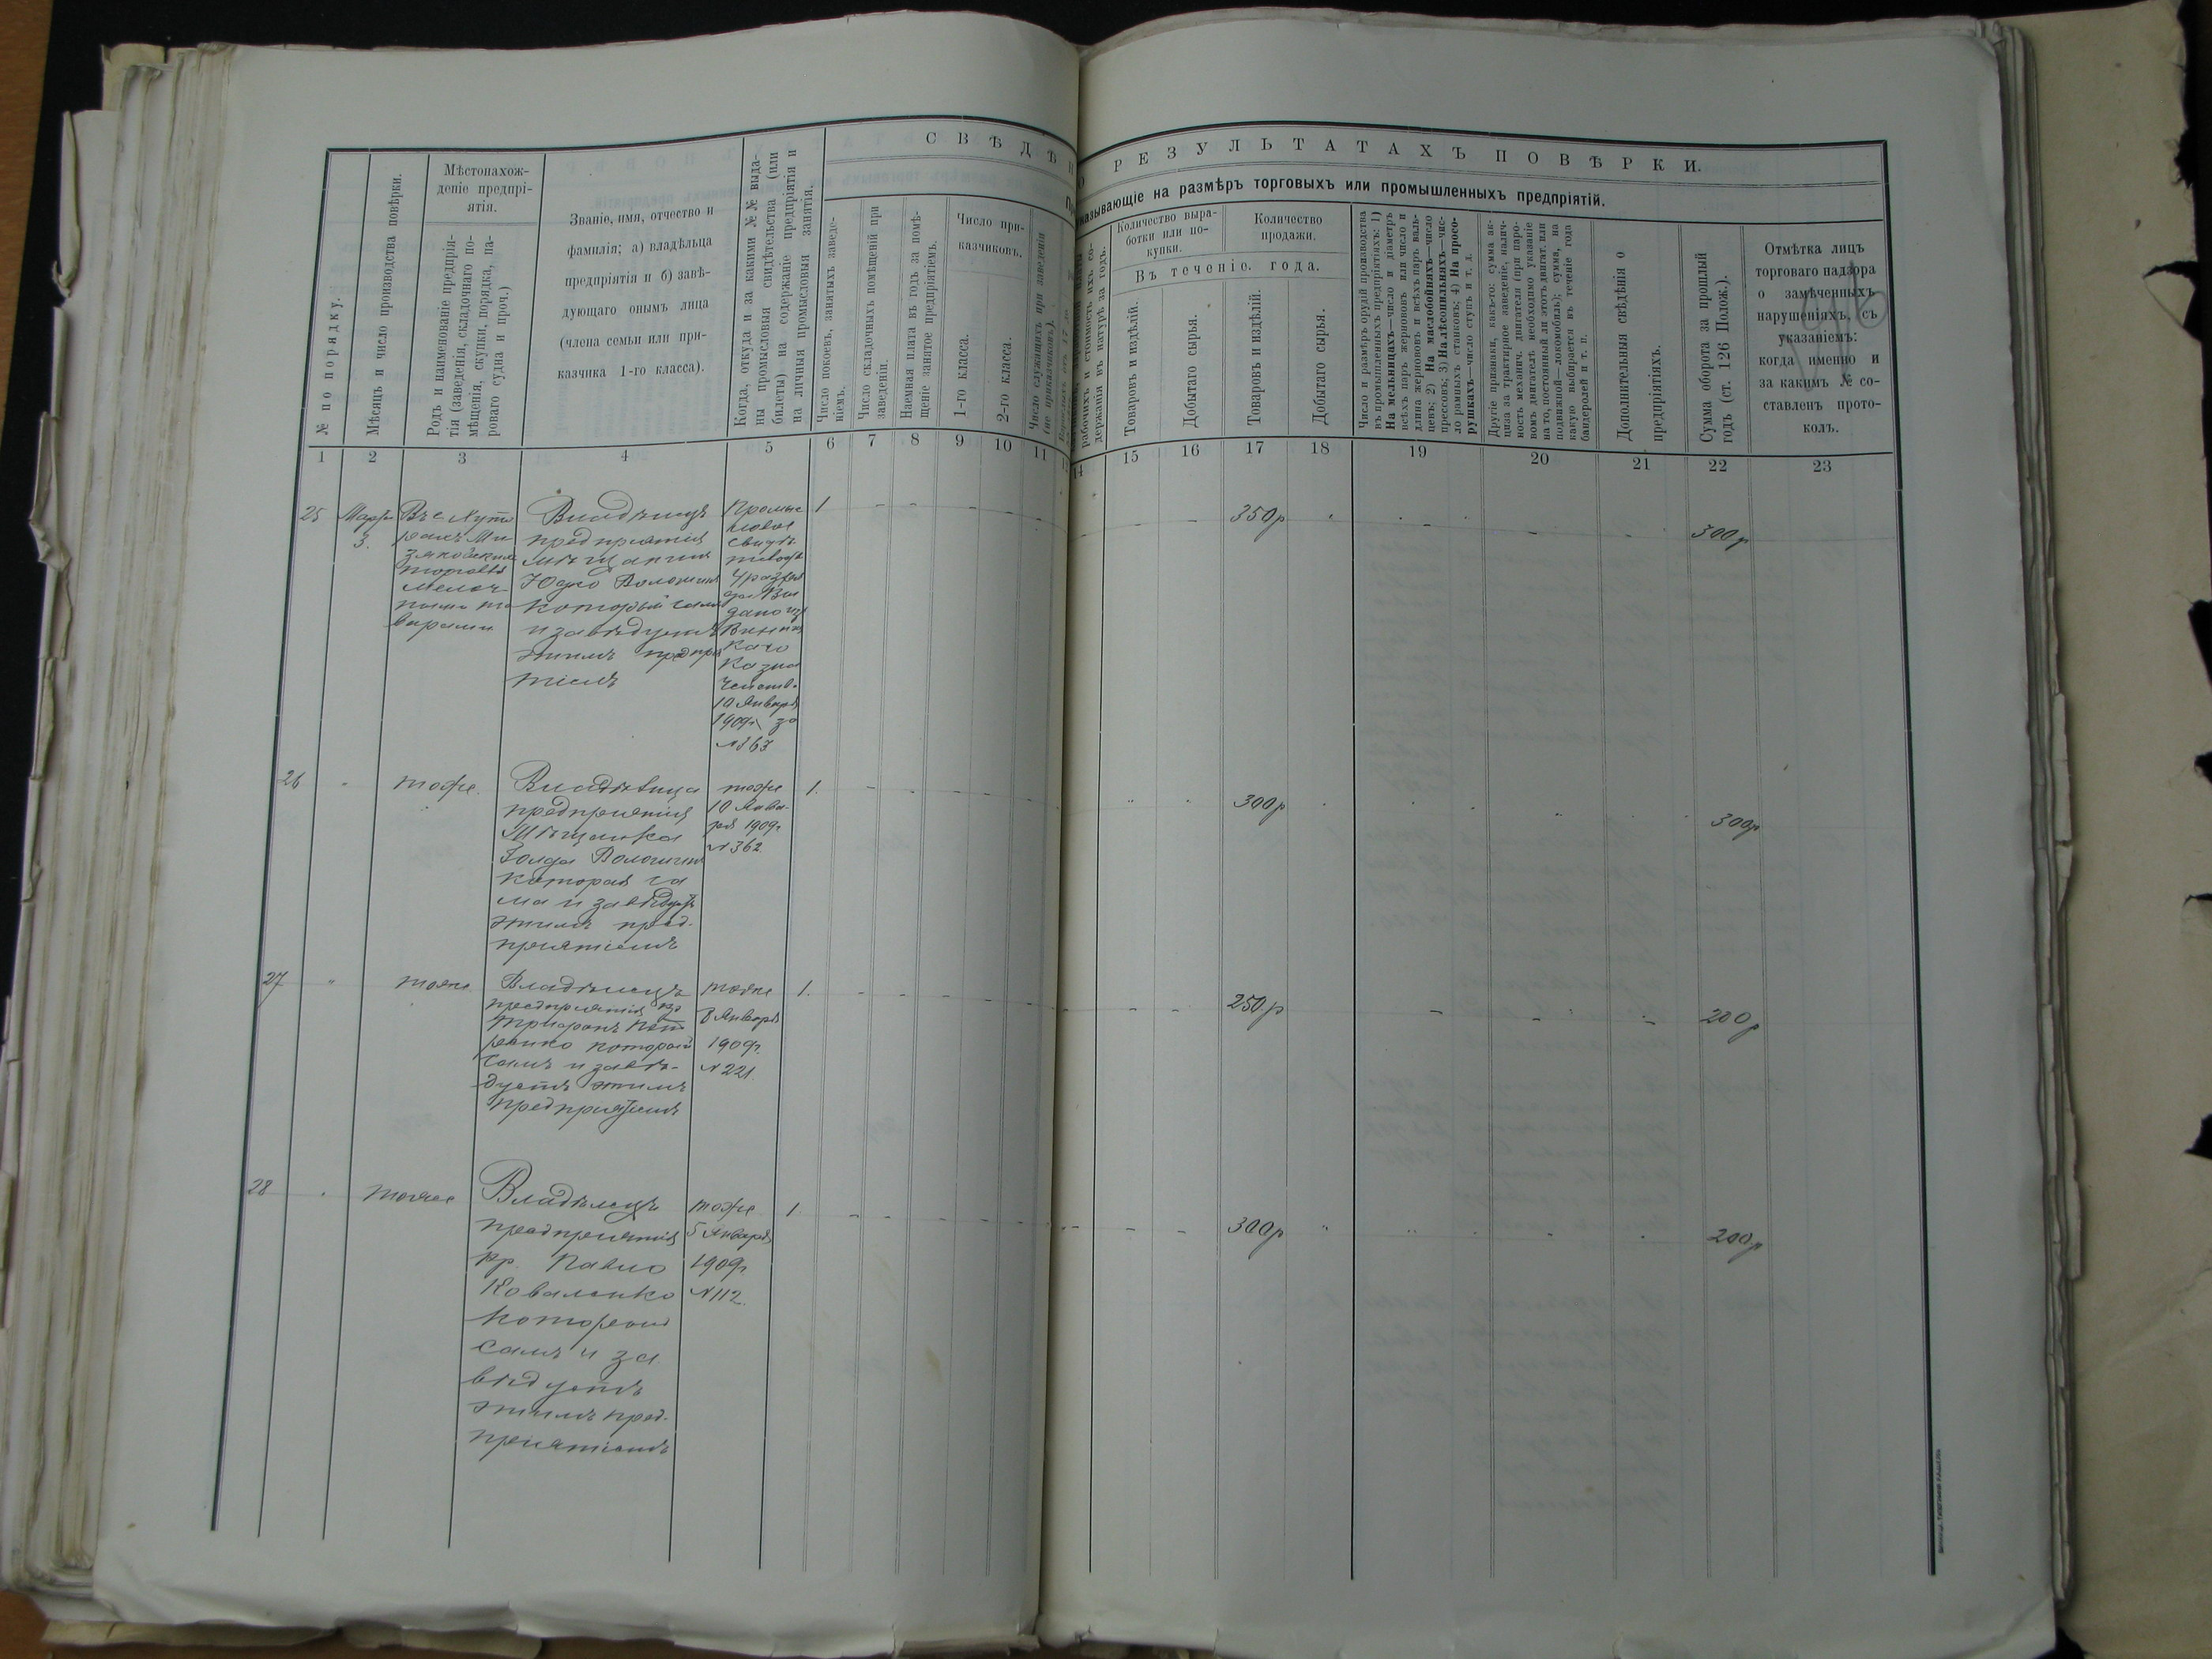 СВѢДѢН
О РЕЗУЛЬТАТАХЪ ПОВѢРКИ.
казывающіе на размѣръ торговыхъ или промышленныхъ предпріятій.
№ по порядку.
Мѣсяцъ и число производства повѣрки.
Мѣстонахож-
деніе предпрі-
ятія.
Родъ и наименованіе предпрія-
тія (заведенія, складочнаго по-
мѣщенія, скупки, порядка, па-
роваго судна и проч.)
Званіе, имя, отчество и
фамилія; а) владѣльца
предпріятія и б) завѣ-
дующаго онымъ лица
(члена семьи или при-
казчика 1-го класса).
Когда, откуда и за какими №№ выда-
ны промысловыя свидѣтельства (или
билеты) на содержаніе предпріятія и
на личныя промысловыя занятія.
Число покоевъ, занятыхъ заведе-
ніемъ.
Число складочныхъ помѣщеній при
заведеніи.
Наемная плата въ годъ за помѣ-
щеніе занятое предпріятіемъ.
Число при-
казчиковъ.
1-го класса.
2-го класса.
Число служащихъ при заведеніи
(не приказчиковъ).
рабочихъ и стоимость ихъ со-
держанія въ натурѣ за годъ.
Количество выра-
ботки или по-
купки.
Количество
продажи.
Въ теченіе года.
Товаровъ и издѣлій.
Добытаго сырья.
Товаровъ и издѣлій.
Добытаго сырья.
Число и размѣръ орудій производства
въ промышленныхъ предпріятіяхъ: 1)
На мельницахъ—число и діаметръ
всѣхъ паръ жернововъ или число и
длина жернововъ и всѣхъ паръ валь-
цевъ; 2) На маслобойняхъ—число
прессовъ; 3) На лѣсопильняхъ—чис-
ло рамныхъ станковъ; 4) На просо-
рушкахъ—число ступъ и т. д.
Другіе признаки, какъ-то: сумма ак-
циза за трактирное заведеніе, налич-
ность механич. двигателя (при паро-
вомъ двигателѣ необходимо указаніе
на то, постоянный ли этотъ двигат. или
подвижной—локомобиль); сумма, на
какую выбирается въ теченіе года
бандеролей и т. п.
Дополнительныя свѣдѣнія о
предпріятіяхъ.
Сумма оборота за прошлый
годъ (ст. 126 Полож.).
Отмѣтка лицъ
торговаго надзора
о замѣченныхъ
нарушеніяхъ, съ
указаніемъ:
когда именно и
за какимъ № со-
ставленъ прото-
колъ.
1 2 3 4 5 6 7 8 9 10 11 14 15 16 17 18 19 20 21 22 23
25
Марта
3.
торговля
мелоч-
ными то
варами
Владѣлецъ
предпріятія
мѣщанинъ
который самъ
и завѣдуетъ
этимъ предпрі
тіемъ
Промыс
ловое
свидѣ
тельст
4 разря
да Вы
дано из
Винниц
каго
Казна
чейств.
10 Января
1909г. за
№363
1
350р
300р
26
"
тоже.
Владѣлица
предпріятія
Мѣщанка
которая са
ма и завѣдуетъ
этимъ пред-
пріятіемъ
тоже
10 Янва-
ря 1909г
№362
1.
300р
300р
27
"
тоже
Владѣлецъ
предпріятія кр
который
самъ и завѣ-
дуетъ этимъ
предпріятіемъ
тоже
8 Января
1909г.
№221
1.
250р
200р
28
"
тоже
Владѣлецъ
предпріятія
кр. Павло
Коваленко
который
самъ и за
вѣдуетъ
этимъ пред-
пріятіемъ
тоже
5 Января
1909г.
№112
1.
300р
200р